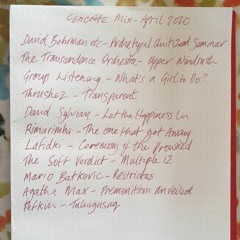 Concrete Mix - April 2020
David Behrman etc - Archetypal Unitized Seminar
The Transcendence Orchestra - Upper Windrest
Group Listening - What's a Girl to Do?
Thrushez - Transparent
David Sylvian - Let the Happiness In
Rimarimba - The one that got Away
Lafidki - Ceremony of the Drowned
The Soft Verdict - Multiple 12
Mario Batkovic - Restrictus
Agathe Max - Premonition Unveiled
Pefkin -